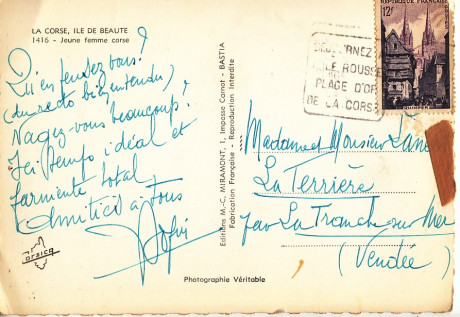 LA CORSE, ILE DE BEAUTE
1416 - Jeune femme corse
Qu'en pensez-vous?
(du recto bien entendu)
Nagez-vous beaucoup?
Ici temps idéal et
farniente total
Amitiés à Tous
corsica
Photographie Véritable
Editions M.-C. MIRAMONT, 1, Impasse Carnot - BASTIA
Fabrication Française - Reproduction Interdite
SEJOURNEZ
ILE ROUSSE
PLAGE D'OR
DE LA CORSE
REPUBLIQUE FRANÇAISE
12F
Madame et Monsieur
La Terrière
par La Tranche-sur-Mer
(Vendée)